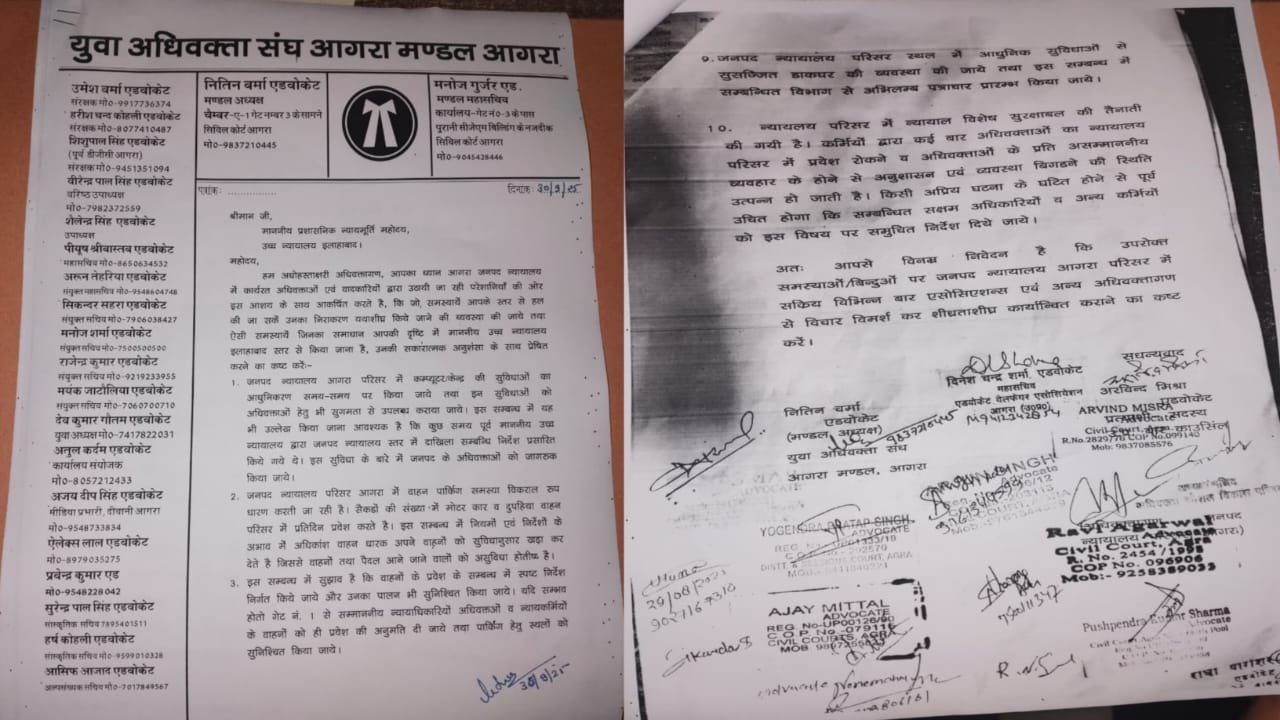 युवा अधिवक्ता संघ आगरा मण्डल आगरा
उमेश वर्मा एडवोकेट
संरक्षक मो०-9917736374
हरीश चन्द कोहली एडवोकेट
संरक्षक मो०-8077410487
शिशुपाल सिंह एडवोकेट
(पूर्व डीजीसी आगरा)
संरक्षक मो०-9451351094
वीरेन्द्र पाल सिंह एडवोकेट
वरिष्ठ उपाध्यक्ष
मो०-7982372559
शैलेन्द्र सिंह एडवोकेट
उपाध्यक्ष
पीयूष श्रीवास्तव एडवोकेट
महासचिव मो०-8650634532
अरून तेहरिया एडवोकेट
संयुक्त महासचिव मो०-9548604748
सिकन्दर सहरा एडवोकेट
संयुक्त सचिव मो०-7906038427
मनोज शर्मा एडवोकेट
संयुक्त सचिव मो०-7500500500
राजेन्द्र कुमार एडवोकेट
संयुक्त सचिव मो०-9219233955
मयंक जाटौलिया एडवोकेट
संयुक्त सचिव मो०-7060700710
देव कुमार गौतम एडवोकेट
युवा अध्यक्ष मो०-7417822031
अतुल कर्दम एडवोकेट
कार्यालय संयोजक
मो०-8057212433
अजय दीप सिंह एडवोकेट
मीडिया प्रभारी, दीवानी आगरा
मो०-9548733834
ऐलेक्स लाल एडवोकेट
मो०-8979035275
प्रबेन्द्र कुमार एड
मो०-9548228042
सुरेन्द्र पाल सिंह एडवोकेट
सांस्कृतिक सचिव 7895401511
हर्ष कोहली एडवोकेट
सांस्कृतिक सचिव मो०-9599010328
आसिफ आजाद एडवोकेट
अल्पसंख्यक सचिव मो०-7017849567
नितिन वर्मा एडवोकेट
मण्डल अध्यक्ष
चैम्बर-ए-1 गेट नम्बर 3 के सामने
सिविल कोर्ट आगरा
मो०-9837210445
मनोज गुर्जर एड.
मण्डल महासचिव
कार्यालय-गेट नं०-3 के पास
पुरानी सीजेएम बिल्डिंग के नजदीक
सिविल कोर्ट आगरा
मो०-9045428446
पत्रांक: ................
दिनांक: 30/8/25
श्रीमान जी,
माननीय प्रशासनिक न्यायमूर्ति महोदय,
उच्च न्यायालय इलाहाबाद।
महोदय,
हम अधोहस्ताक्षरी अधिवक्तागण, आपका ध्यान आगरा जनपद न्यायालय
में कार्यरत अधिवक्ताओं एवं वादकारियों द्वारा उठायी जा रही परेशानियों की ओर
इस आशय के साथ आकर्षित करते है, कि जो, समस्यायें आपके स्तर से हल
की जा सकें उनका निराकरण यथाशीघ्र किये जाने की व्यवस्था की जाये तथा
ऐसी समस्यायें जिनका समाधान आपकी दृष्टि में माननीय उच्च न्यायालय
इलाहाबाद स्तर से किया जाना है, उनकी सकारात्मक अनुशंसा के साथ प्रेषित
करने का कष्ट करें:-
1. जनपद न्यायालय आगरा परिसर में कम्प्यूटर/केन्द्र की सुविधाओं का
आधुनिकरण समय-समय पर किया जाये तथा इन सुविधाओं को
अधिवक्ताओं हेतु भी सुगमता से उपलब्ध कराया जाये। इस सम्बन्ध में यह
भी उल्लेख किया जाना आवश्यक है कि कुछ समय पूर्व माननीय उच्च
न्यायालय द्वारा जनपद न्यायालय स्तर में दाखिला सम्बन्धि निर्देश प्रसारित
किये गये थे। इस सुविधा के बारे में जनपद के अधिवक्ताओं को जागरुक
किया जाये।
2. जनपद न्यायालय परिसर आगरा में वाहन पार्किंग समस्या विकराल रूप
धारण करती जा रही है। सैकडों की संख्या में मोटर कार व दुपहिया वाहन
परिसर में प्रतिदिन प्रवेश करते है। इस सम्बन्ध में नियमों एवं निर्देशों के
अभाव में अधिकांश वाहन धारक अपने वाहनों को सुविधानुसार खड़ा कर
देते है जिससे वाहनों तथा पैदल आने जाने वालों को असुविधा होती है।
3. इस सम्बन्ध में सुझाव है कि वाहनों के प्रवेश के सम्बन्ध में स्पष्ट निर्देश
निर्गत किये जायें और उनका पालन भी सुनिश्चित किया जाये। यदि सम्भव
हो तो गेट नं. 1 से सम्माननीय न्यायाधिकारियों अधिवक्ताओं व न्यायकर्मियों
के वाहनों को ही प्रवेश की अनुमति दी जाये तथा पार्किंग हेतु स्थलों को
सुनिश्चित किया जाये।
30/8/25
9. जनपद न्यायालय परिसर स्थल में आधुनिक सुविधाओं से
सुसज्जित डाकघर की व्यवस्था की जाये तथा इस सम्बन्ध में
सम्बन्धित विभाग से अभिलम्ब पत्राचार प्रारम्भ किया जाये।
10. न्यायलय परिसर में न्यायाल विशेष सुरक्षाबल की तैनाती
की गयी है। कर्मियों द्वारा कई बार अधिवक्ताओं का न्यायालय
परिसर में प्रवेश रोकने व अधिवक्ताओं के प्रति असम्माननीय
व्यवहार के होने से अनुशासन एवं व्यवस्था बिगडने की स्थिति
उत्पन्न हो जाती है। किसी अप्रिय घटना के घटित होने से पूर्व
उचित होगा कि सम्बन्धित सक्षम अधिकारियों व अन्य कर्मियों
को इस विषय पर समुचित निर्देश दिये जाये।
अतः आपसे विनम्र निवेदन है कि उपरोक्त
समस्याओं/बिन्दुओं पर जनपद न्यायालय आगरा परिसर में
सक्रिय विभिन्न बार एसोसिएशन्स एवं अन्य अधिवक्तागण
से विचार विमर्श कर शीघ्रताशीघ्र कार्यान्वित कराने का कष्ट
करें।
सधन्यवाद
दिनेश चन्द्र शर्मा. एडवोकेट
महासचिव
एडवोकेट वेलफेयर एसोसियेशन
आगरा (उ०प्र०)
अरविन्द मिश्रा
एडवोकेट
ARVIND MISRA
सदस्य
Civil Court,
काउंसिल
COP No.099140
Mob: 9837085576
नितिन वर्मा
एडवोकेट
(मण्डल अध्यक्ष)
युवा अधिवक्ता संघ
आगरा मण्डल, आगरा
YOGENDRA PRATAP SINGH
ADVOCATE
DISTT. & SESSIONS COURT, AGRA
Ravi Agarwal
Advocate
Civil Court, Agra
R. No. 2454 /1998
COP No. 096906
Mob:- 9258389033
AJAY MITTAL
ADVOCATE
REG No-UP00126/90
C.O.P. No.-079116
CIVIL COURTS, AGRA
Pushpendra Kumar Sharma
Advocate